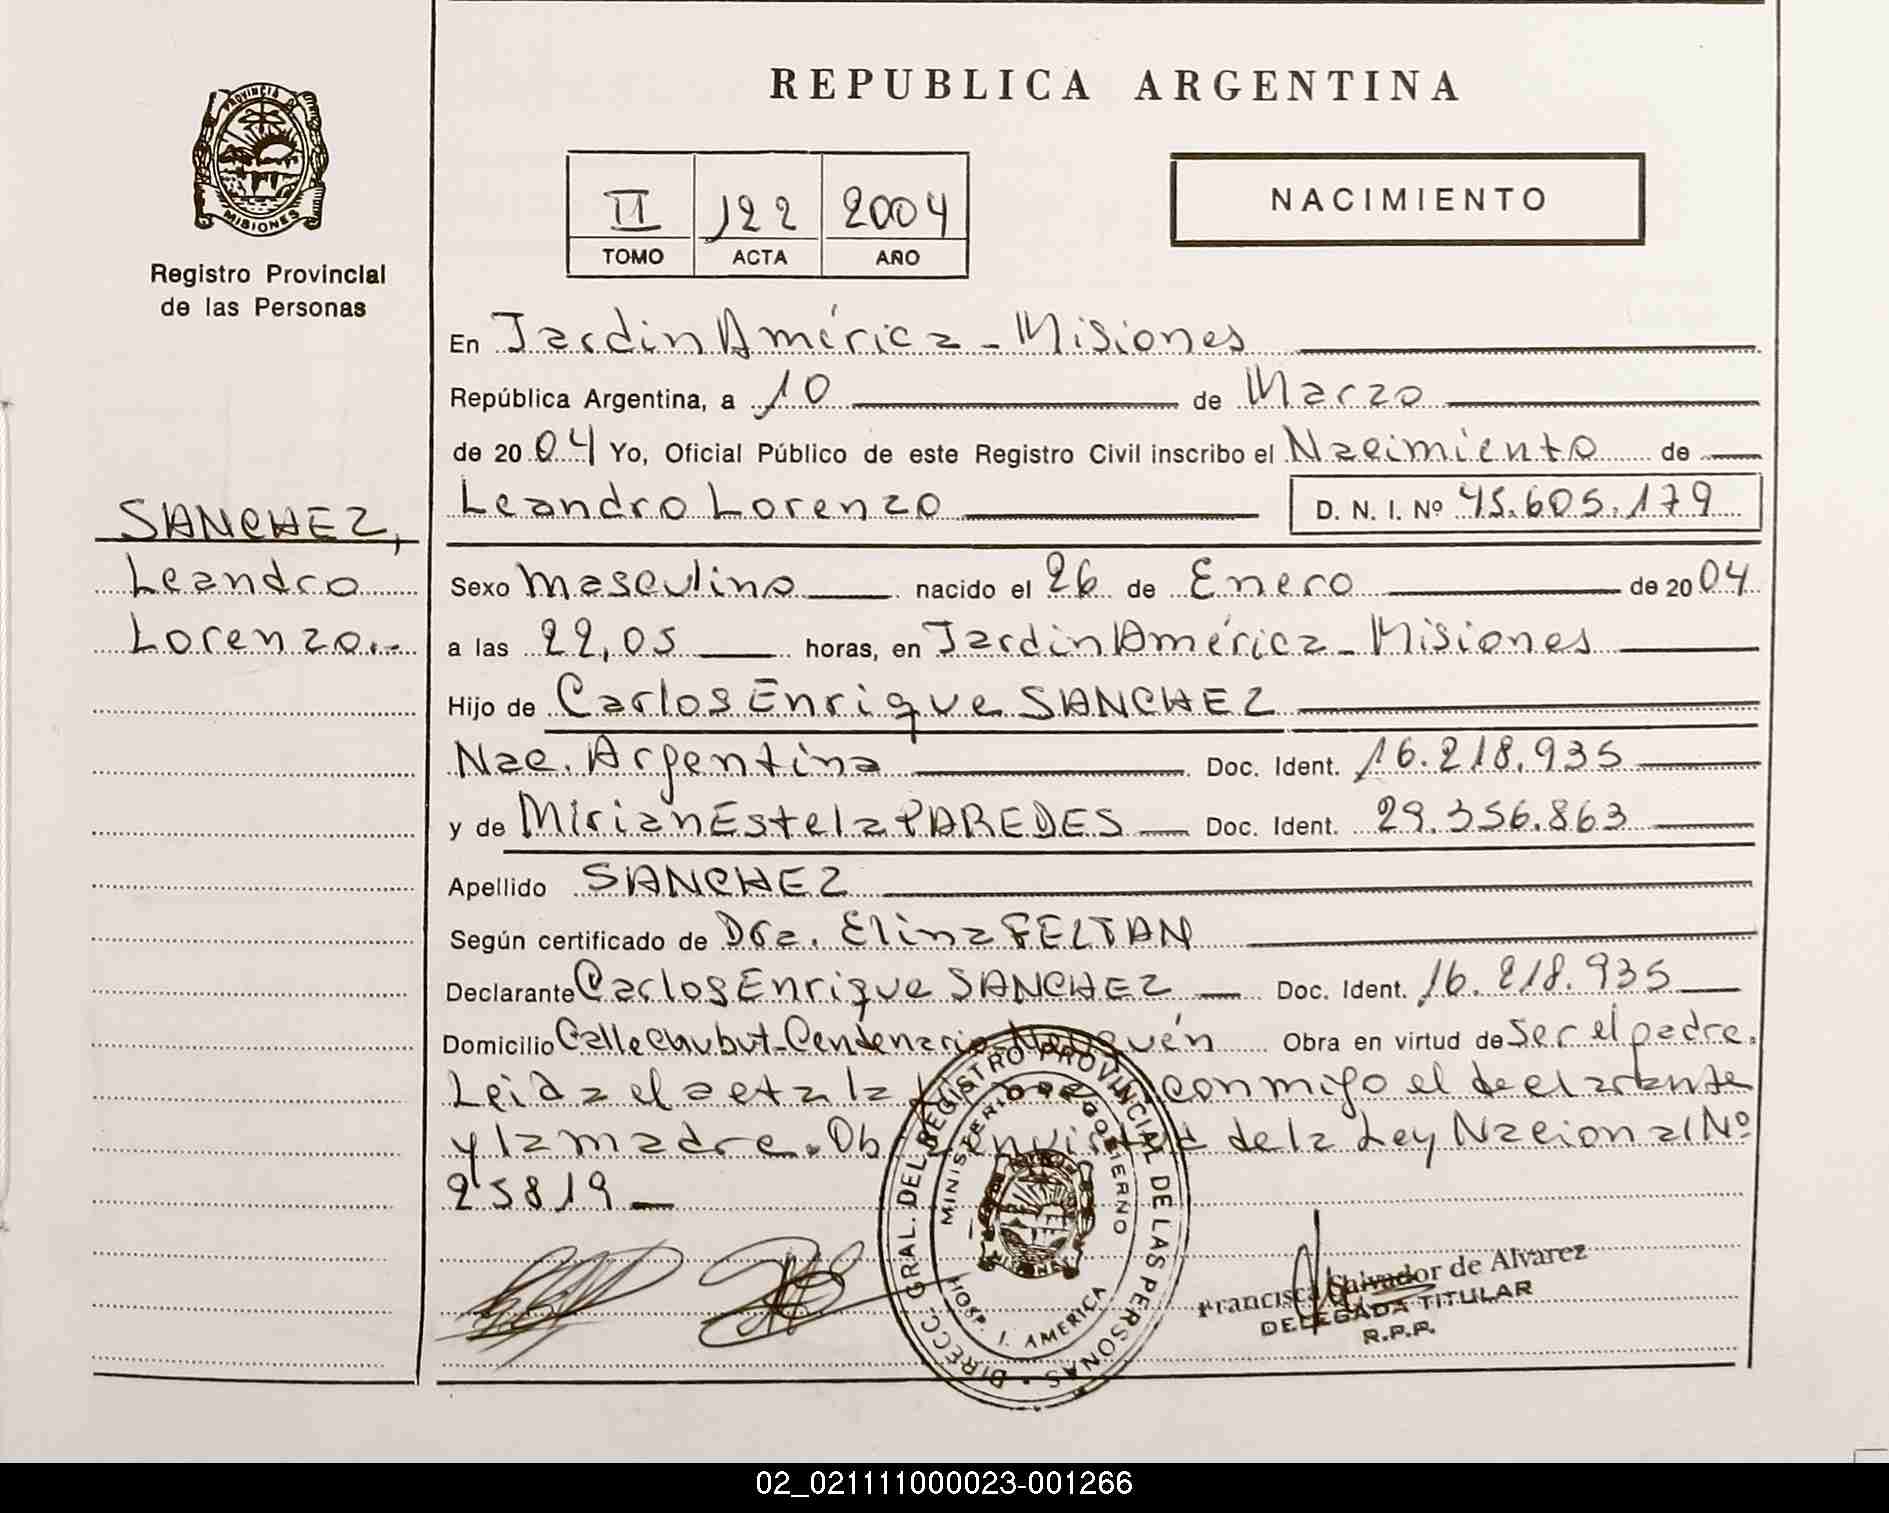 REPUBLICA ARGENTINA
PROVINCIA DE
MISIONES
Registro Provincial
de las Personas
II 122 2004
TOMO ACTA AÑO
NACIMIENTO
SANCHEZ,
Leandro
Lorenzo.-
En Jardin América - Misiones
República Argentina, a 10 de Marzo
de 2004 Yo, Oficial Público de este Registro Civil inscribo el Nacimiento de
Leandro Lorenzo D. N. I. Nº 45.605.179
Sexo masculino nacido el 26 de Enero de 2004
a las 22,05 horas, en Jardin América - Misiones
Hijo de Carlos Enrique SANCHEZ
Nac. Argentina Doc. Ident. 16.218.935
y de Mirian Estela PAREDES Doc. Ident. 29.356.863
Apellido SANCHEZ
Según certificado de Dra. Elina FELTAN
Declarante Carlos Enrique SANCHEZ Doc. Ident. 16.218.935
Domicilio Calle Chubut - Centenario - Neuquén Obra en virtud de Ser el padre.
Leida el acta la conmigo el declarante
y la madre. en virtud de la Ley Nacional Nº
25819
DIRECC. GRAL. DEL REGISTRO PROVINCIAL DE LAS PERSONAS
MINISTERIO DE GOBIERNO
MISIONES
HOSP. J. AMERICA
Francisca Salvador de Alvarez
DELEGADA TITULAR
R.P.P.
02_021111000023-001266